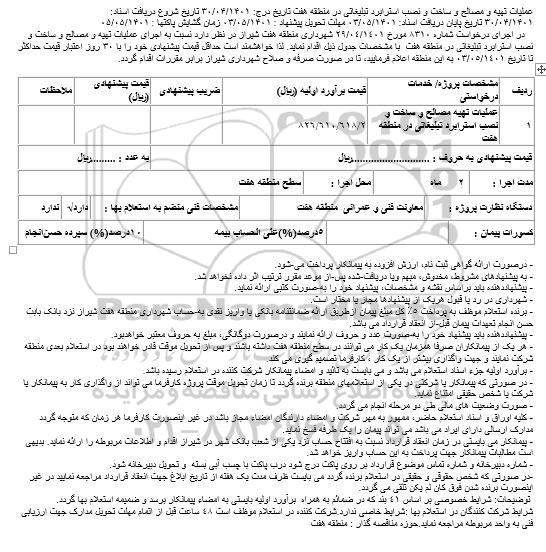 عملیات تهیه و مصالح و ساخت و نصب استرابرد تبلیغاتی در منطقه هفت تاریخ درج: ۳۰/۰۴/۱۴۰۱ تاریخ شروع دریافت اسناد:
۳۰/۰۴/۱۴۰۱ تاریخ پایان دریافت اسناد: ۰۳/۰۵/۱۴۰۱ مهلت تحویل پیشنهاد : ۰۳/۰۵/۱۴۰۱ زمان گشایش پاکتها : ۰۵/۰۵/۱۴۰۱
در اجرای درخواست شماره ۸۳۱۰ مورخ ۲۹/۰۴/۱۴۰۱ شهرداری منطقه هفت شیراز در نظر دارد نسبت به اجرای عملیات تهیه و مصالح و ساخت و
نصب استرابرد تبلیغاتی در منطقه هفت با مشخصات جدول ذیل اقدام نماید. لذا خواهشمند است حداقل قیمت پیشنهادی خود را با ۳۰ روز اعتبار قیمت حداکثر
تا تاریخ ۰۳/۰۵/۱۴۰۱ به این منطقه اعلام فرمایید، تا در صورت صرفه و صلاح شهرداری شیراز برابر مقررات اقدام گردد.
ردیف مشخصات پروژه/ خدمات درخواستی قیمت برآورد اولیه (ریال) ضریب پیشنهادی قیمت پیشنهادی (ریال) ملاحظات
۱ عملیات تهیه مصالح و ساخت و نصب استرابرد تبلیغاتی در منطقه هفت ۸۲۶/۶۱۰/۶۱۸/۲
قیمت پیشنهادی به حروف : ..........................ریال به عدد : .........ریال
مدت اجرا : ۲ ماه محل اجرا : سطح منطقه هفت
دستگاه نظارت پروژه : معاونت فنی و عمرانی منطقه هفت مشخصات فنی منضم به استعلام بها : دارد/√ ندارد
کسورات پیمان : ۵درصد(%)علی الحساب بیمه ۱۰درصد(%) سپرده حسن‌انجام
- درصورت ارائه گواهی ثبت نام، ارزش افزوده به پیمانکار پرداخت می‌شود.
- به پیشنهادهای مشروط، مخدوش، مبهم ویا دریافت‌شده پس‌از موعد مقرر ترتیب اثر داده نخواهد شد.
- پیشنهاددهنده باید براساس نقشه و مشخصات، پیشنهاد خود را به‌صورت کتبی ارائه نماید.
- شهرداری در رد یا قبول هریک از پیشنهادها مجاز یا مختار است.
- برنده استعلام موظف به پرداخت ۵٪ کل مبلغ پیمان ازطریق ارائه ضمانتنامه بانکی یا واریز نقدی به‌حساب شهرداری منطقه هفت شیراز نزد بانک بابت
حسن انجام تعهدات پیمان قبل‌از انعقاد قرارداد می باشد.
- پیشنهاددهنده باید پیشنهاد خود را به‌صورت عدد و حروف ارائه نمایند و درصورت دوگانگی، مبلغ به حروف معتبر خواهدبود.
- هر یک از پیمانکاران صرفا همزمان یک کار می توانند در سطح منطقه هفت داشته باشند و پس از تحویل موقت قادر خواهند بود در استعلام بعدی منطقه
شرکت نمایند و جهت واگذاری بیشتر از یک کار ، کارفرما تصمیم گیری می کند.
- برآورد اولیه جزء اسناد استعلام می باشد و می بایست به تائید و امضاء پیمانکار شرکت کننده در استعلام رسیده باشد.
- در صورتی که پیمانکار یا شرکتی در یکی از استعلامهای منطقه برنده گردد تا زمان تحویل موقت پروژه کارفرما می تواند از واگذاری کار به پیمانکار یا
شرکت یا شخص حقیقی امتناع نماید.
- صورت وضعیت های مالی طی دو مرحله انجام می گردد.
- کلیه اوراق و اسناد استعلام حاضر، ممهور به مهر شرکت و امضاء دارندگان امضاء مجاز باشد در غیر اینصورت کارفرما هر زمان که متوجه گردد
مدارک ارسالی دارای ایراد می باشد می‌تواند پیمان را یک طرفه فسخ نماید.
- پیمانکار می بایستی در زمان انعقاد قرارداد نسبت به افتتاح حساب نزد یکی از شعب بانک شهر در شیراز اقدام و اطلاعات مربوطه را ارائه نماید. بدیهی
است مطالبات پیمانکار جهت پرداخت به این حساب واریز خواهد شد.
- شماره دبیرخانه و شماره تماس موضوع قرارداد بر روی پاکت درج شود درب پاکت با چسب آبی بسته و تحویل دبیرخانه شود.
-در صورتی که شخص حقوقی و حقیقی در استعلام برنده گردد می بایست ظرف مدت یک هفته از تاریخ ابلاغ جهت انعقاد قرارداد مراجعه نمایید در غیر
اینصورت برنده شدن فوق کان لم یکن تلقی می گردد.
توضیحات: شرایط خصوصی بر اساس ۴۱ بند که در ضمائم به همراه برآورد اولیه بایستی به امضاء پیمانکار برسد و ضمیمه استعلام بها گردد.
شرایط شرکت کنندگان در استعلام بها :شرایط خاصی ندارد.شرکت کننده در استعلام موظف است ۴۸ ساعت قبل از اتمام مهلت تحویل مدارک جهت ارزیابی
فنی به واحد مربوطه مراجعه نماید.حوزه مناقصه گذار : منطقه هفت